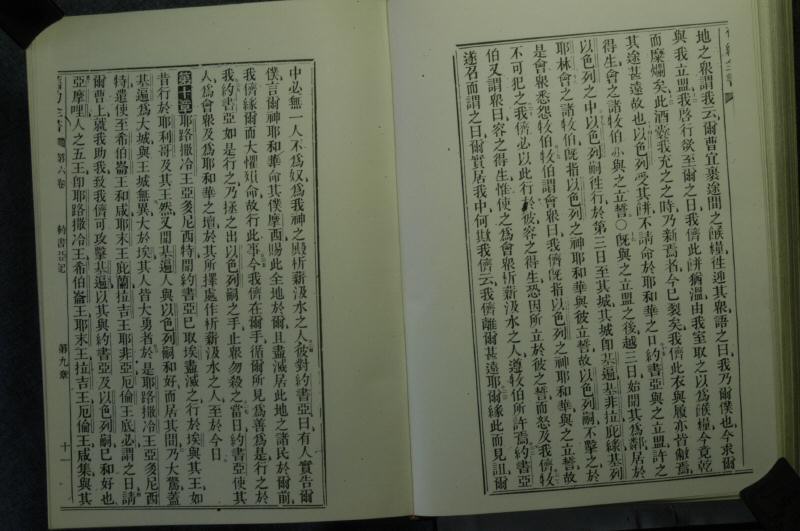 地之衆謂我云爾曹宜裹途間之餱糧往迎其衆語之曰我乃爾僕也今求爾
與我立盟我啟行欲至爾之日我儕此餅猶溫由我室取之以爲餱糧今竟乾
而糜爛矣此酒囊我充之之時乃新焉者今已裂矣我儕此衣與履亦皆敝焉
其途甚遠故也以色列受其餅不請命於耶和華之口約書亞與之立盟許之
得生會之諸牧伯亦與之立誓○旣與之立盟之後越三日始聞其爲鄰居於
以色列之中以色列嗣徃行於第三日至其城其城卽基遍基非拉庇綠基列
耶林會之諸牧伯旣指以色列之神耶和華與彼立誓故以色列嗣不擊之於
是會衆悉怨牧伯牧伯謂會衆曰我儕旣指以色列之神耶和華與之立誓故
不可犯之我儕必以此行於彼容之得生恐因所立於彼之誓而怒及我儕牧
伯又謂衆曰容之得生惟使之爲會衆析薪汲水之人遵牧伯所許焉約書亞
遂召而謂之曰爾實居我中何欺我儕云我儕離爾甚遠耶爾緣此而見詛爾
中必無一人不爲奴爲我神之殿析薪汲水之人彼對約書亞曰有人實告爾
僕言爾神耶和華命其僕摩西賜此全地於爾且盡滅居此地之諸民於爾前
我儕緣爾而大懼喪命故行此事今我儕在爾手循爾所見爲善爲是行之於
我約書亞如是行之乃拯之出以色列嗣之手止衆勿殺之當日約書亞使其
人爲會衆及爲耶和華之壇於其所擇處作析薪汲水之人至於今日
第十章耶路撒冷王亞多尼西特聞約書亞已取埃盡滅之行於埃與其王如
昔行於耶利哥及其王然又聞基遍人與以色列嗣和好而居其間乃大驚蓋
基遍爲大城與王城無異大於埃其人皆大勇者於是耶路撒冷王亞多尼西
特遣使至希伯崙王和咸耶末王庇蘭拉吉王耶非亞厄倫王底必謂之曰請
爾曹上就我助我致我儕可攻擊基遍以其與約書亞及以色列嗣已和好也
亞摩哩人之五王卽耶路撒冷王希伯崙王耶末王拉吉王厄倫王咸集與其
第六卷 約書亞記 第九章 十一